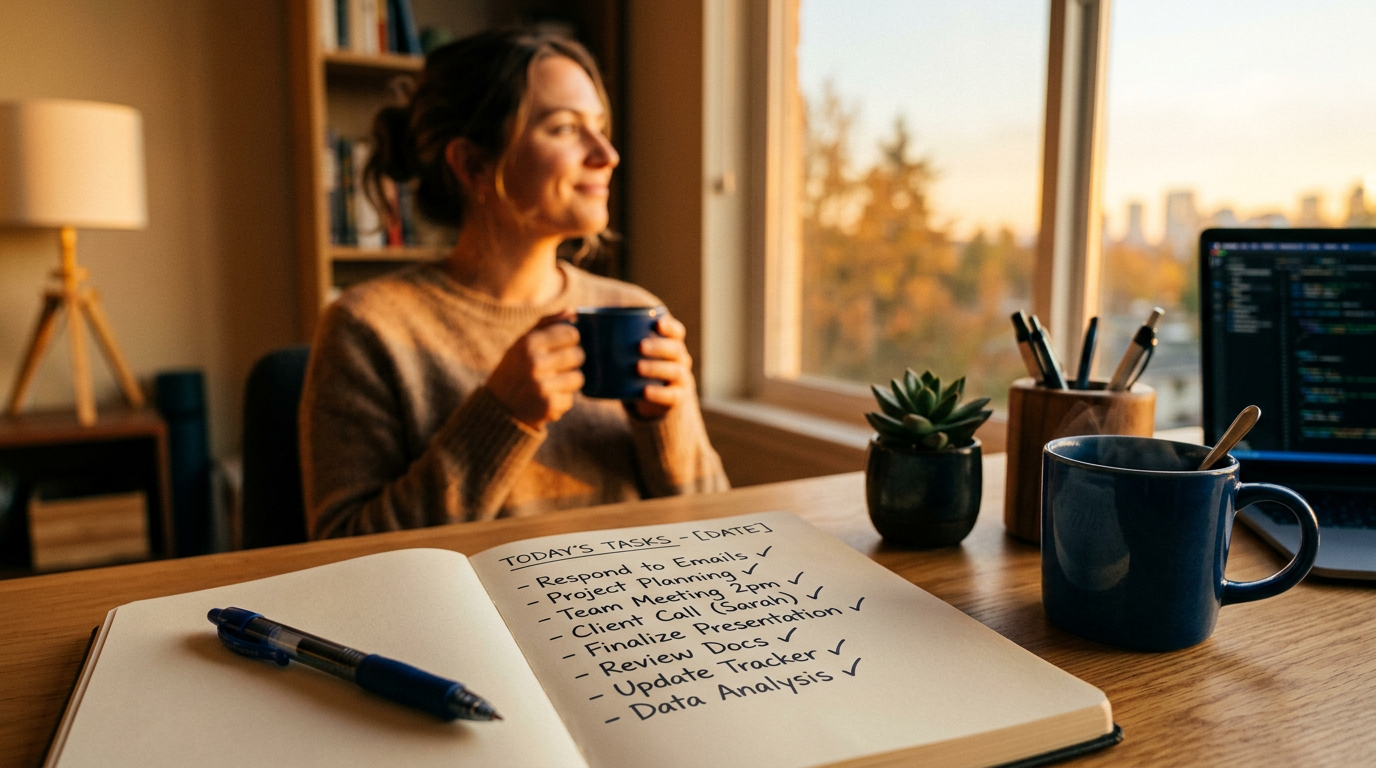 TODAY'S TASKS - [DATE]
- Respond to Emails ✓
- Project Planning ✓
- Team Meeting 2pm ✓
- Client Call (Sarah) ✓
- Finalize Presentation ✓
- Review Docs ✓
- Update Tracker ✓
- Data Analysis ✓